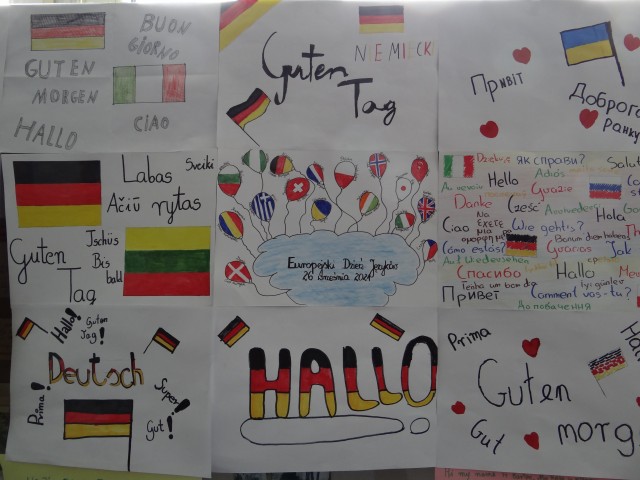 BUON
GIORNO
GUTEN
MORGEN
HALLO
CIAO
NIEMIECKI
Guten
Tag
Привіт
Доброго
ранку
Labas
Sveiki
Ačiū rytas
Guten
Tag
Tschüs
Bis
bald
Europejski Dzień Języków
26 września 2021
як справи?
Hello
Adiós
Salut
Danke
Grazie
Cześć
Hola
Ciao
Wie geht's?
¿Cómo estás?
Gracias
Jak
Auf Wiedersehen
Спасибо
Hallo
Tenha um bom dia
Привет
Comment vas-tu?
До побачення
Hallo!
Guten
Tag!
Deutsch
Prima!
Super!
Gut!
HALLO
Prima
Guten
Gut
morg